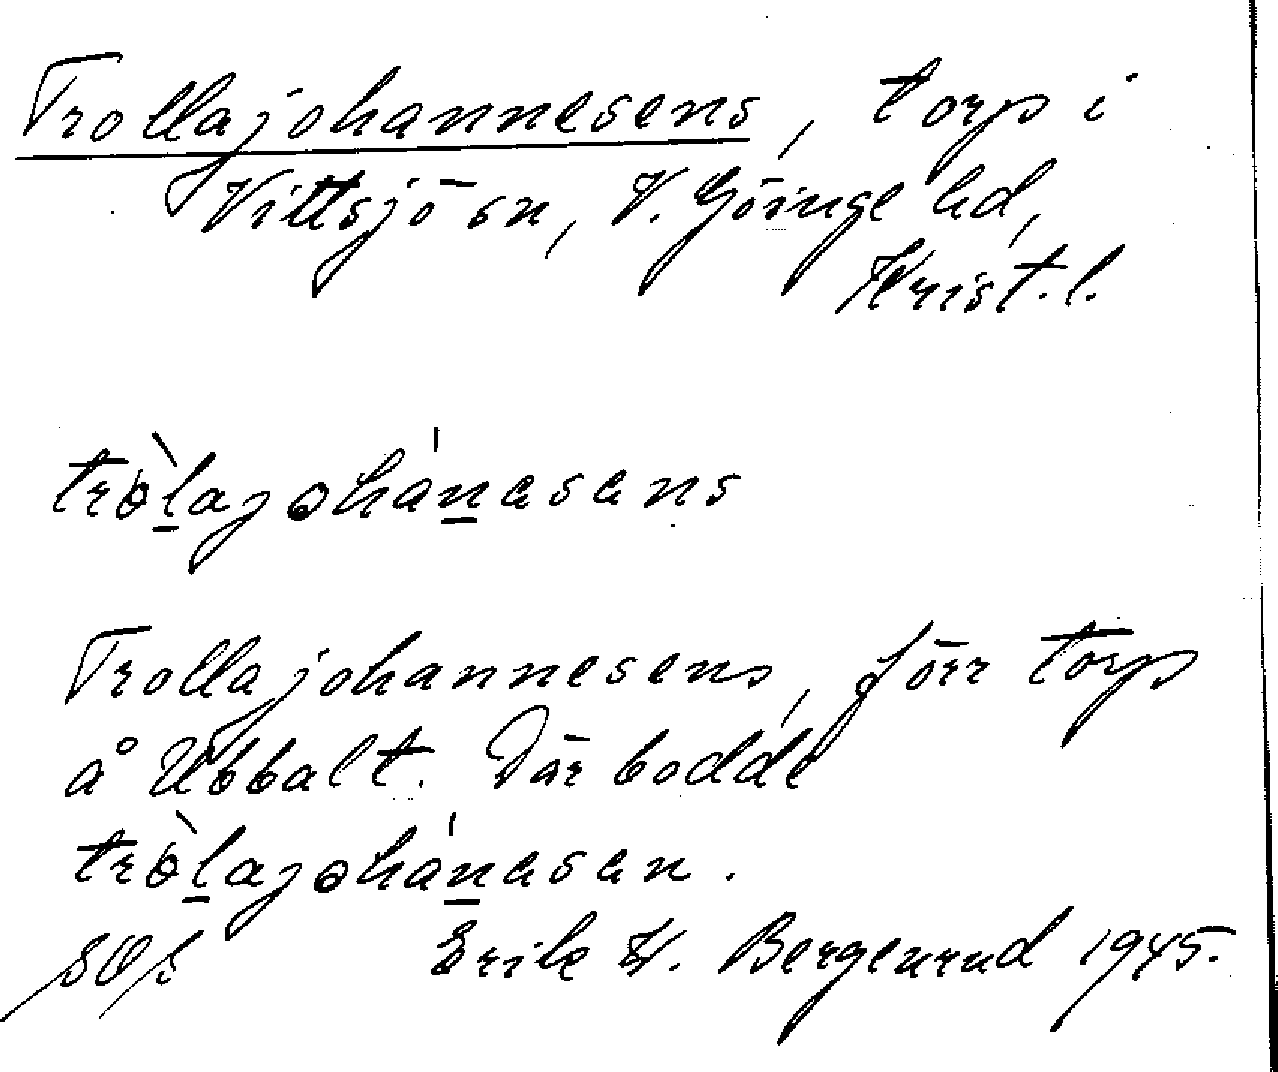 Trollajohannesens, torp i
Vittsjö sn, V. Göinge hd,
Krist. l.
tròlajohánasans
Trollajohannesens, förr torp
å Ubbalt. Där bodde
tròlajohánasan.
Erik H. Bergenrud 1945.